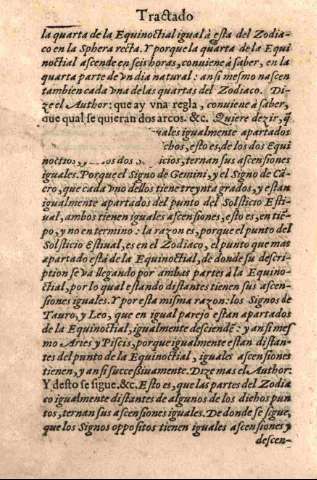 Tractado
la quarta de la Equinoctial igual à esta del Zodia-
co en la Sphera recta. Y porque la quarta de la Equi
noctial asciende en seis horas, conviene à saber, en la
quarta parte de vn dia natural: ansi mesmo nascen
tambien cada vna de las quartas del Zodiaco. Di-
ze el Author: que ay vna regla, conviene à saber,
que qual se quieran dos arcos. &c. Quiere dezir, q̃
iguales igualmente apartados
chos, esto es, de los dos Equi
noctios, y de los dos Solsticios, ternan sus ascensiones
iguales. Porque el Signo de Gemini, y el Signo de Cã
cro, que cada vno dellos tiene treynta grados, y estan
igualmente apartados del punto del Solsticio Esti
ual, ambos tienen iguales ascensiones, esto es, en tiẽ-
po, y no en termino: la razon es, porque el punto del
Solsticio Estiual, es en el Zodiaco, el punto que mas
apartado està de la Equinoctial, de donde su descri
ption se và llegando por ambas partes à la Equino-
ctial, por lo qual estando distantes tienen sus ascen-
siones iguales. Y por esta misma razon: los Signos de
Tauro, y Leo, que en igual parejo estan apartados
de la Equinoctial, igualmente desciendẽ: y ansi mes
mo Aries y Piscis, porque igualmente estan distan-
tes del punto de la Equinoctial, iguales ascensiones
tienen, y ansi successiuamente. Dize mas el Author:
Y desto se sigue, &c. Esto es, que las partes del Zodia
co igualmente distantes de algunos de los dichos pun
tos, ternan sus ascensiones iguales. De donde se sigue,
que los Signos oppositos tienen iguales ascensiones y
descen-